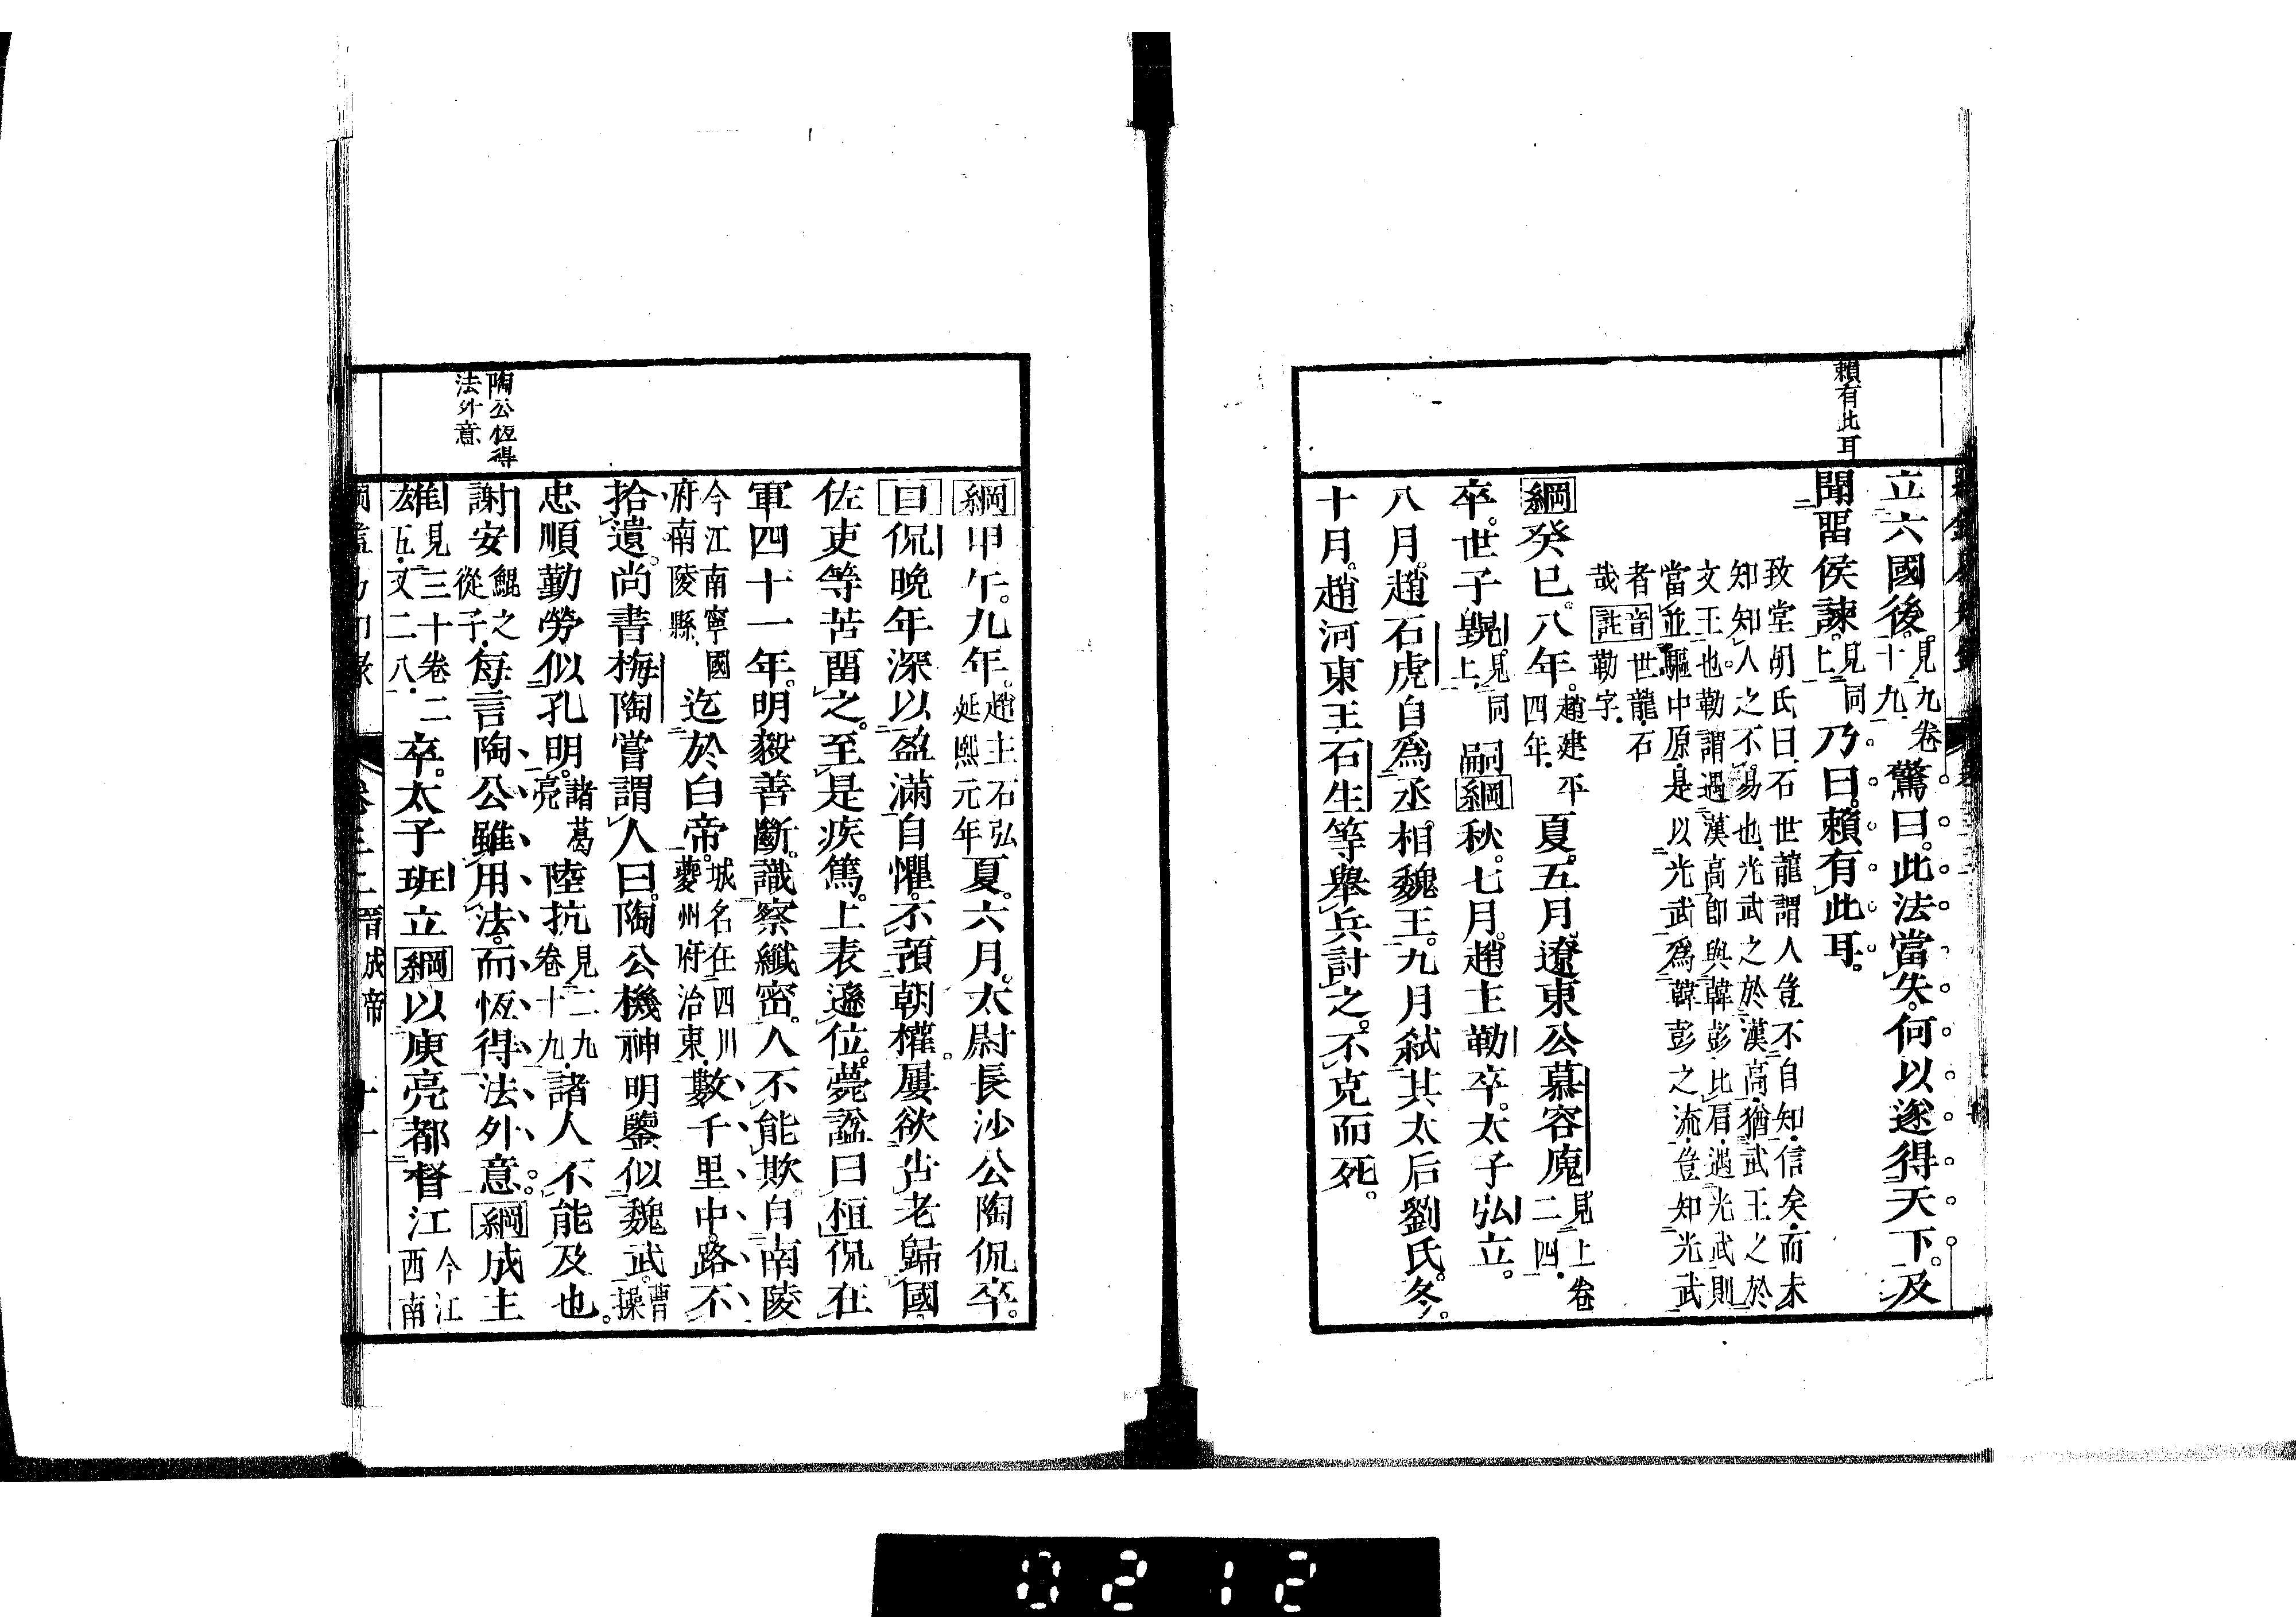 賴有此耳
立六國後。見九卷十九驚曰。此法當失。何以遂得天下。及
聞畱侯諫。見同上乃曰。賴有此耳。
致堂胡氏曰石世龍謂人豈不自知信矣而未
知知人之不易也光武之於漢高猶武王之於
文王也勒謂遇漢高卽與韓彭比肩遇光武則
當並驅中原是以光武爲韓彭之流豈知光武
者音世龍石
哉註勒字
綱癸巳。八年。趙建平四年夏。五月。遼東公慕容廆見上卷二四
卒。世子皝見同上嗣綱秋。七月。趙主勒卒。太子弘立。
八月。趙石虎自爲丞相魏王。九月弑其太后劉氏。冬。
十月。趙河東王石生等舉兵討之。不克而死。
綱甲午。九年。趙主石弘延熙元年夏。六月。太尉長沙公陶侃卒。
目侃晚年深以盈滿自懼。不預朝權。屢欲告老歸國
佐吏等苦畱之。至是疾篤。上表遜位。薨諡曰桓侃在
軍四十一年。明毅善斷。識察纖密。人不能欺自南陵
今江南寧國府南陵縣迄於白帝。城名在四川夔州府治東數千里中。路不
拾遺。尚書梅陶嘗謂人曰。陶公機神明鑒似魏武。曹操
忠順勤勞似孔明。諸葛亮陸抗見二九卷十九諸人不能及也。
謝安鯤之從子每言陶公雖用法。而恆得法外意。綱成主
雄見三十卷二太五又二八卒。太子班立綱以庾亮都督江今江西南
陶公恆得
法外意
卷三十二晉成帝 十一
0212